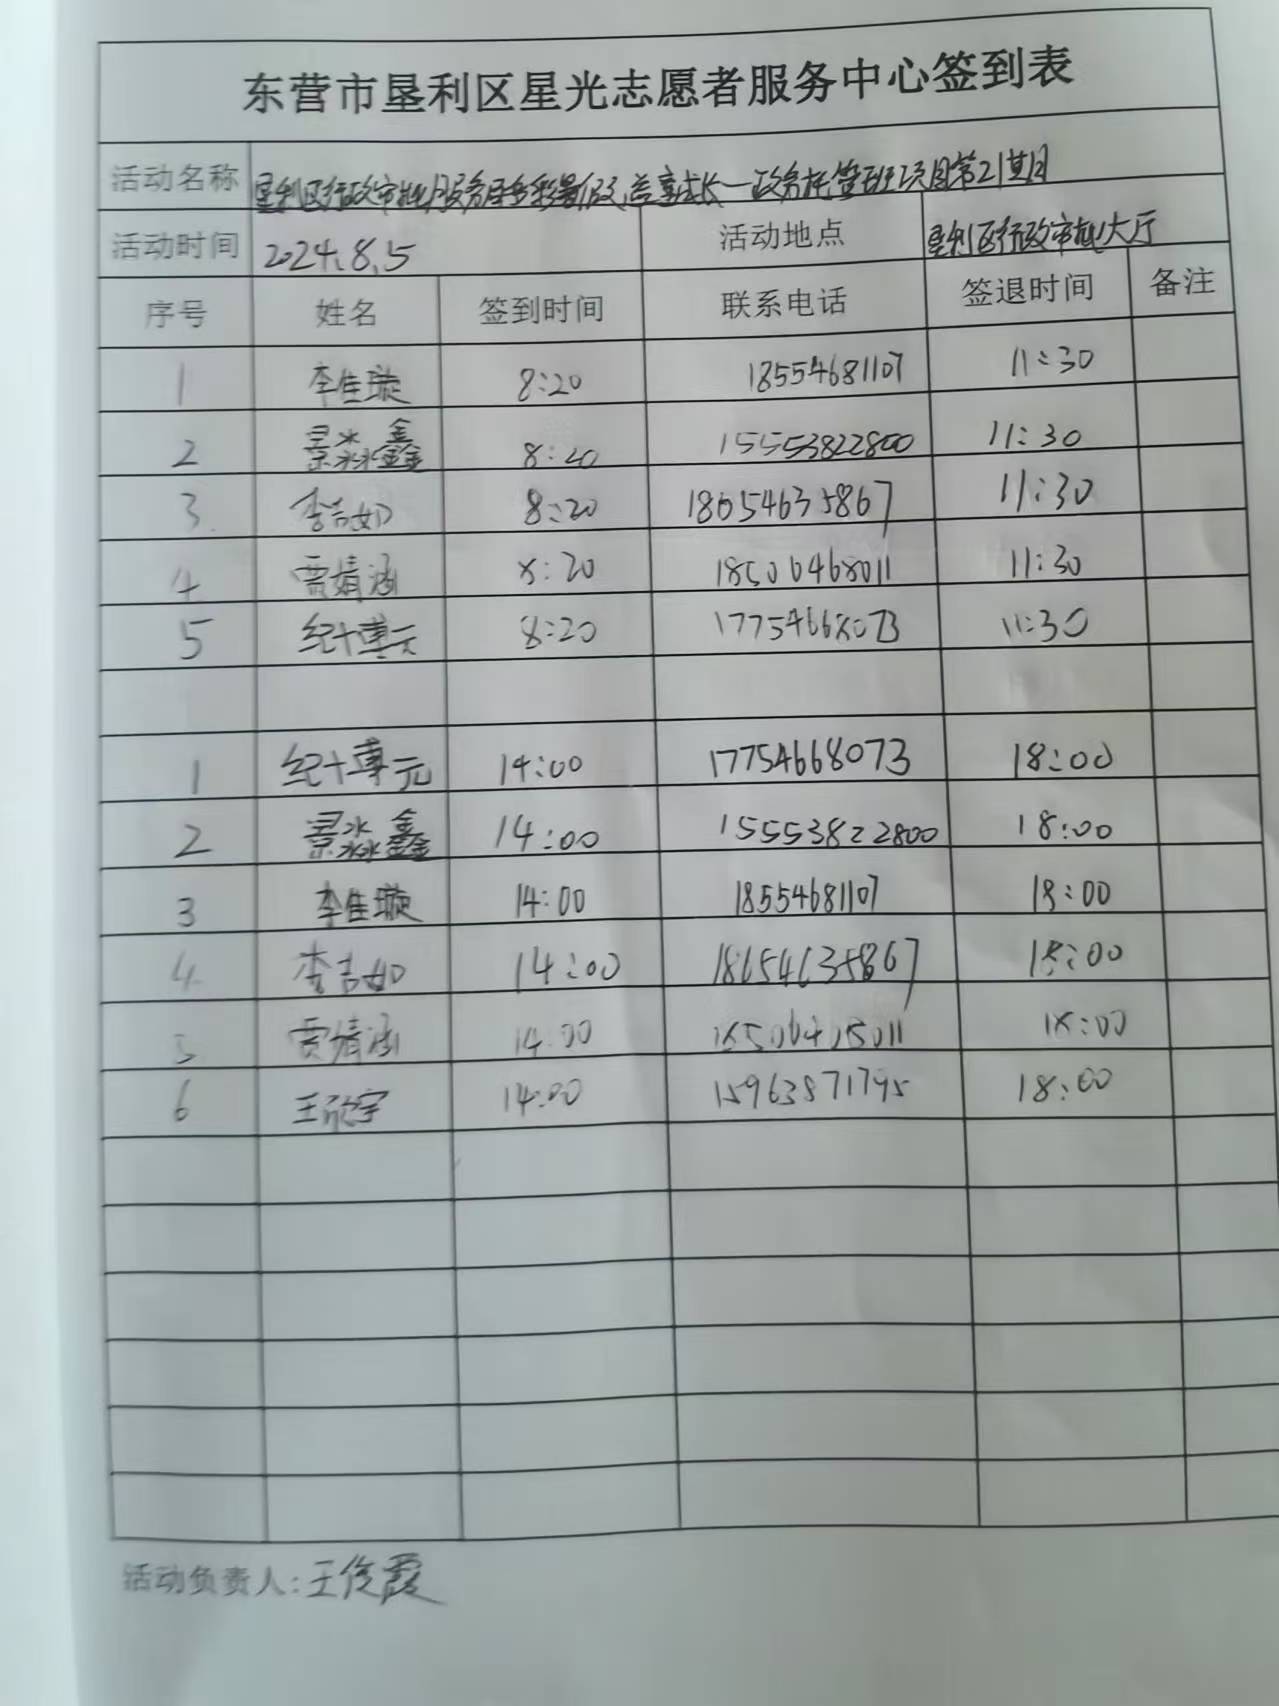 东营市垦利区星光志愿者服务中心签到表
活动名称 垦利区行政审批服务局多彩暑假,益童成长一政务托管班项目第21期
活动时间 2024.8.5 活动地点 垦利区行政审批大厅
序号 姓名 签到时间 联系电话 签退时间 备注
1 李佳璇 8:20 18554681107 11:30
2 景淼鑫 8:20 15553822800 11:30
3 李吉如 8:20 18654635867 11:30
4 贾婧涵 8:20 18506468011 11:30
5 纪博元 8:20 17754668073 11:30
1 纪博元 14:00 17754668073 18:00
2 景淼鑫 14:00 15553822800 18:00
3 李佳璇 14:00 18554681107 18:00
4 李吉如 14:00 18654635867 18:00
5 贾婧涵 14:00 18:00
6 王欣宇 14:00 15963871795 18:00
活动负责人:王俊霞